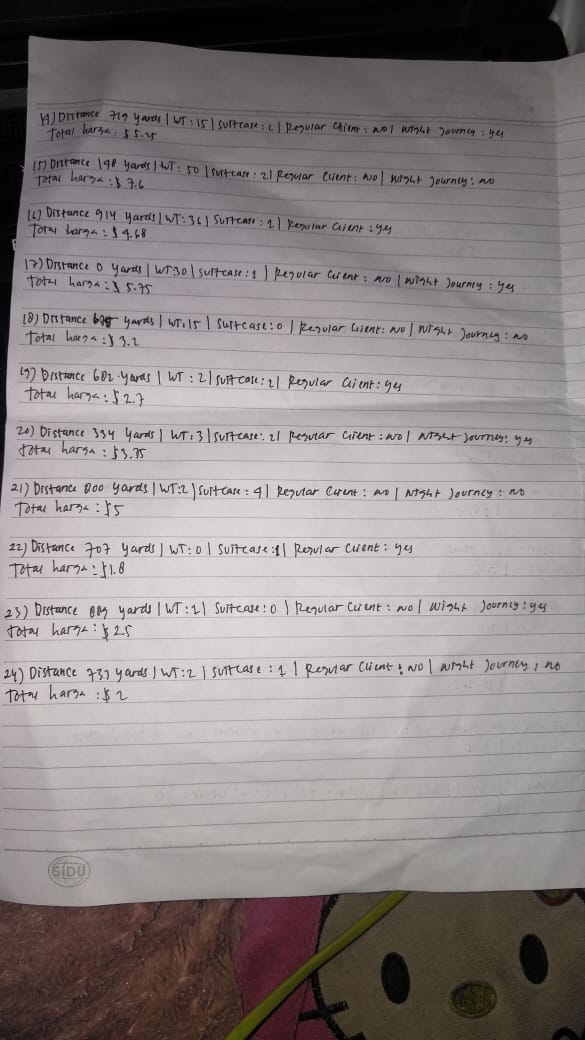 14) Distance 719 yards | WT : 15 | Suitcase : 2 | Regular Client : NO | Night Journey : yes
Total harga : $ 5.25
15) Distance 198 yards | WT : 50 | Suitcase : 2 | Regular Client : No | Night Journey : no
Total harga : $ 7.6
16) Distance 914 yards | WT : 36 | Suitcase : 1 | Regular Client : yes
Total harga : $ 4.68
17) Distance 0 yards | WT : 30 | Suitcase : 1 | Regular Client : no | Night Journey : yes
Total harga : $ 5.75
18) Distance yards | WT : 15 | Suitcase : 0 | Regular Client : No | Night Journey : no
Total harga : $ 3.2
19) Distance 602 yards | WT : 2 | Suitcase : 2 | Regular Client : yes
Total harga : $ 2.7
20) Distance 334 yards | WT : 3 | Suitcase : 2 | Regular Client : NO | Night Journey : yes
Total harga : $3.75
21) Distance 800 yards | WT : 2 | Suitcase : 4 | Regular Client : no | Night Journey : no
Total harga : $5
22) Distance 707 yards | WT : 0 | Suitcase : 1 | Regular Client : yes
Total harga : $1.8
23) Distance 889 yards | WT : 1 | Suitcase : 0 | Regular Client : no | Night Journey : yes
Total harga : $ 2.5
24) Distance 737 yards | WT : 2 | Suitcase : 1 | Regular Client : NO | Night Journey : no
Total harga : $ 2
SIDU